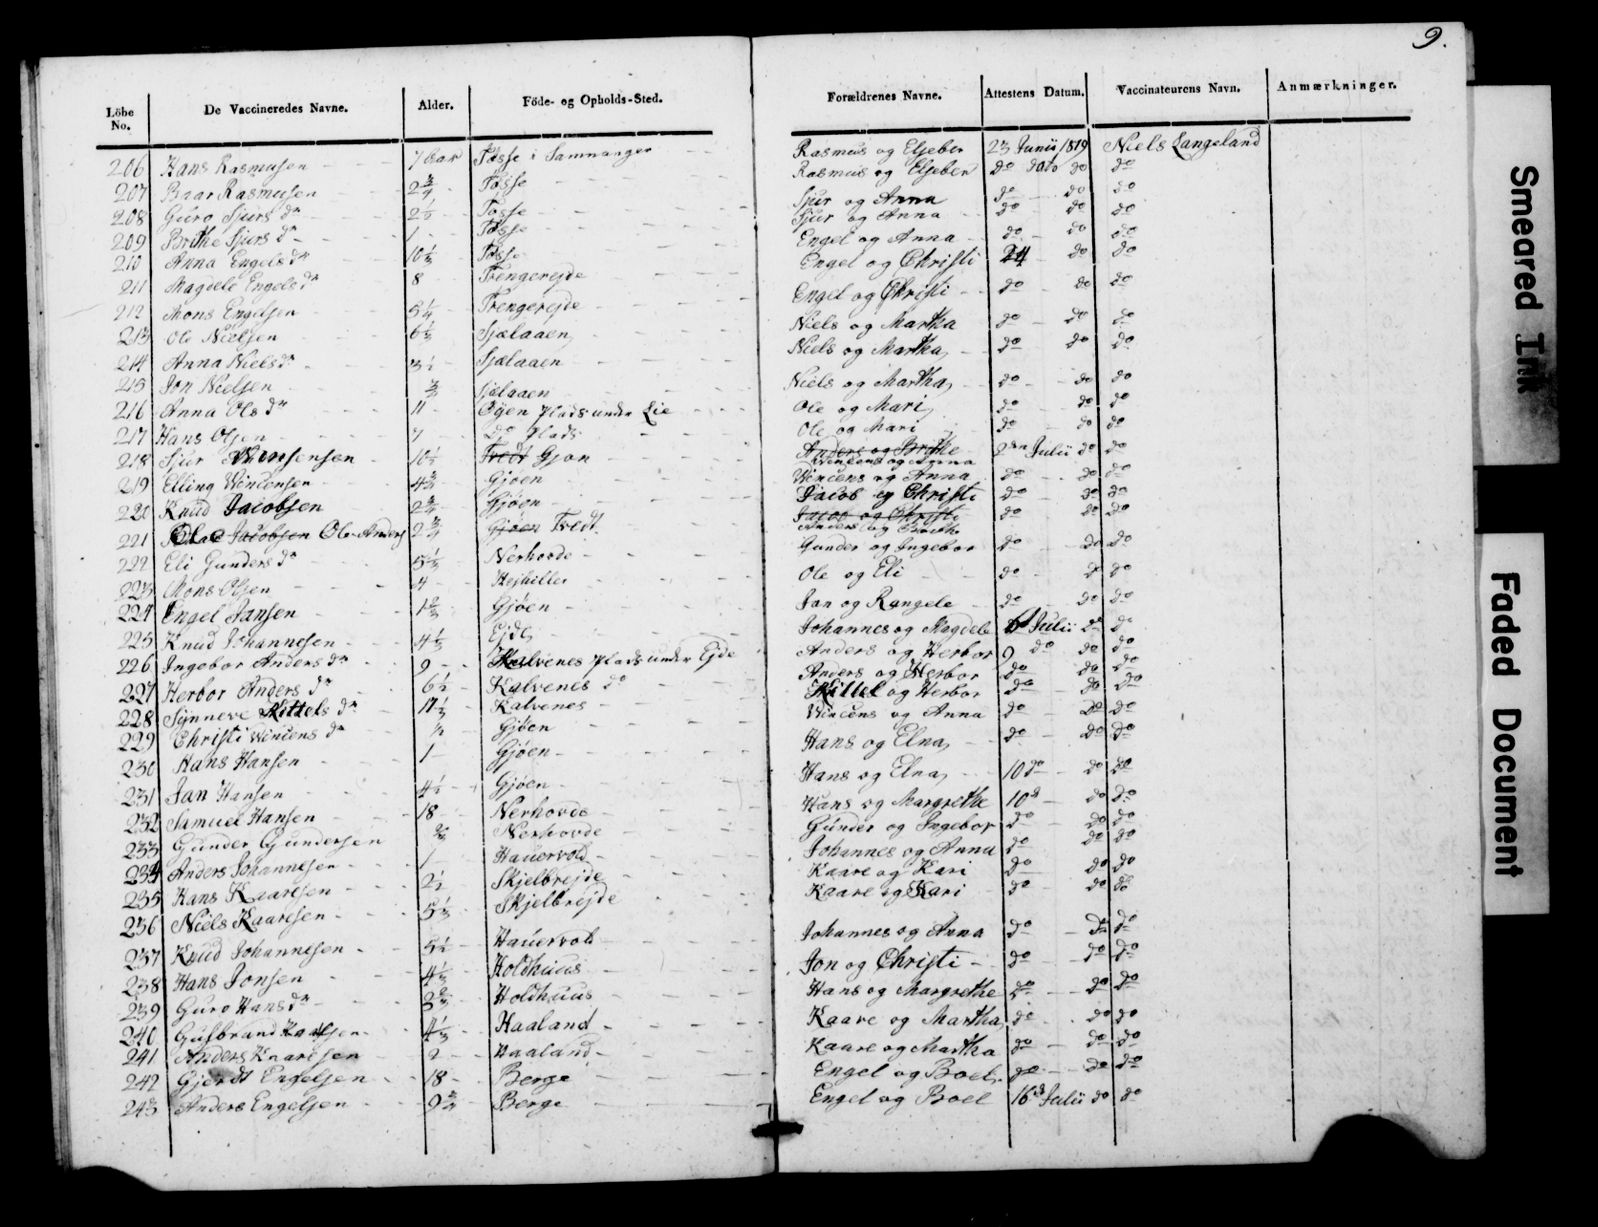 9.
Löbe No. De Vaccineredes Navne. Alder. Föde- og Opholds-Sted. Forældrenes Navne. Attestens Datum. Vaccinateurens Navn. Anmærkninger.
206 Hans Rasmusen 7 Tøsse i Samnanger Rasmus og Elseber 23 Junii 1819 Niels Langeland
207 Baar Rasmusen 2 3/4 Tøsse Rasmus og Elseber do dato do do
208 Guro Sjurs dr 2 1/2 Tøsse Sjur og Anna do do do
209 Brithe Sjurs dr 1 Tøsse Sjur og Anna do do do
210 Anna Engels dr 10 1/2 Tøsse Engel og Anna do do do
211 Magdele Engels dr 8 Trengerejde Engel og Christi 24 do do
212 Mons Engelsen 5 1/4 Trengerejde Engel og Christi do do do
213 Ole Nielsen 6 1/2 Sjælaaen Niels og Martha do do do
214 Anna Niels dr 3 1/2 Sjælaaen Niels og Martha do do do
215 Jon Nielsen 3/4 Sjælaaen Niels og Martha do do do
216 Anna Ols dr 11 Øyen Plads under Lie Ole og Mari do do do
217 Hans Olsen 7 do Plads Ole og Mari do do do
218 Sjur 10 1/2 Tredt Gjøn Anders og Brithe 2den Julii do do
Wincens og Anna
219 Elling Wincensen 4 3/4 Gjøen Wincens og Anna do do do
220 Knud Jacobsen 2 3/4 Gjøen Jacob og Christi do do do
221 Jacobsen Ole Anders 2 3/4 Gjøen Tredt Jacob og Christi do do do
Anders og Brithe
222 Eli Gunders dr 5 1/2 Nerhovde Gunder og Ingebor do do do
223 Mons Olsen 4 Hejhiller Ole og Eli do do do
224 Engel Jansen 1 2/3 Gjøen Jan og Rangele do do do
225 Knud Johannesen 4 1/2 Ejde Johannes og Magdele 6 Julii do do
226 Ingebor Anders dr 9 Kalvenes Plads under Ejde Anders og Herbor 9 do do do
227 Herbor Anders dr 6 1/2 Kalvenes do Anders og Herbor do do do
228 Synneve Kittels dr 11 1/2 Kalvenes Kittel og Herbor do do do
229 Christi Wincens dr 1/2 Gjøen Wincens og Anna do do do
230 Hans Hansen 1 Gjøen Hans og Elna do do do
231 Jan Hansen 4 1/2 Gjøen Hans og Elna 10 do do do
232 Samuel Hansen 18 Nerhovde Hans og Margrethe 10 do do
233 Gunder Gundersen Nerhovde Gunder og Ingebor do do do
234 Anders Johannesen 1 Hauervold Johannes og Anna do do do
235 Hans Kaaresen 2 1/2 Skjelbrejde Kaare og Kari do do do
236 Niels Kaaresen 5 1/2 Skjelbrejde Kaare og Kari do do do
237 Knud Johannesen 5 1/2 Hauervold Johannes og Anna do do do
238 Hans Jonsen 4 1/2 Holdhuus Jon og Christi do do do
239 Guro Hans dr 2 2/3 Holdhuus Hans og Margrethe do do do
240 Gulbrand 4 1/2 Haaland Kaare og Martha do do do
241 Anders Knaresen 2 Haaland Kaare og Martha do do do
242 Gjerdt Engelsen 18 Berge Engel og Boel do do do
243 Anders Engelsen 9 3/4 Berge Engel og Boel 16 Julii do do
Smeared Ink
Faded Document